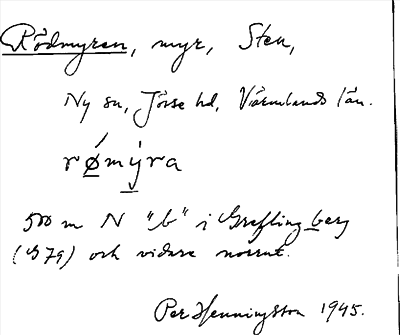 Rödmyren, myr, Sten,
Ny sn, Jösse hd, Värmlands län.
rømyra
500 m N "b" i Grefling berg
(579) och vidare norrut.
Per Henningsson 1945.